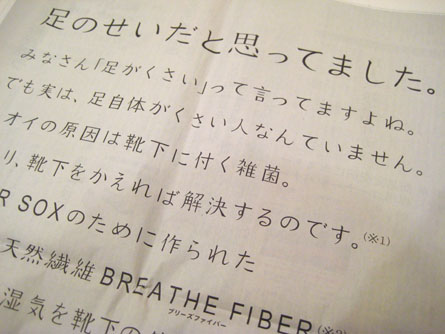 足のせいだと思ってました。
みなさん「足がくさい」って言ってますよね。
でも実は、足自体がくさい人なんていません。
オイの原因は靴下に付く雑菌。
り、靴下をかえれば解決するのです。(※1)
R SOXのために作られた
天然繊維 BREATHE FIBER
ブリーズファイバー
湿気を靴下の